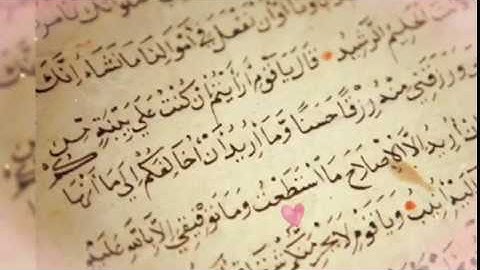 أَوْ أَنْ نَفْعَلَ فِي أَمْوَالِنَا مَا نَشَاءُ إِنَّكَ
الْحَلِيمُ الرَّشِيدُ قَالَ يَا قَوْمِ أَرَأَيْتُمْ إِنْ كُنْتُ عَلَى بَيِّنَةٍ مِنْ
وَرَزَقَنِي مِنْهُ رِزْقًا حَسَنًا وَمَا أُرِيدُ أَنْ أُخَالِفَكُمْ إِلَى مَا أَنْهَا
أُرِيدُ إِلَّا الْإِصْلَاحَ مَا اسْتَطَعْتُ وَمَا تَوْفِيقِي إِلَّا بِاللَّهِ عَلَيْهِ
إِلَيْهِ أُنِيبُ وَيَا قَوْمِ لَا يَجْرِمَنَّكُمْ